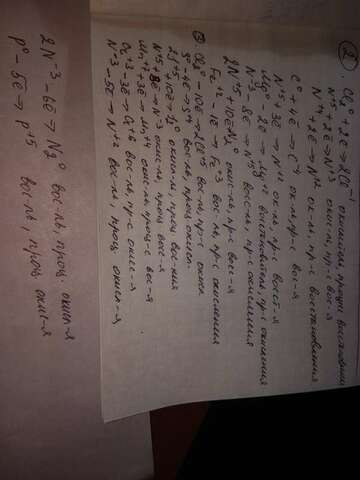 ② Cl₂⁰ + 2ē → 2Cl⁻¹ окислитель, процесс восстановления
N⁺⁵ + 2ē → N⁺³ окис-ль, пр-с вос-я
N⁺⁴ + 2ē → N⁺² ок-ль, пр-с восстановления
C⁰ + 4ē → C⁻⁴ ок-ль, пр-с вос-я
N⁺⁵ + 3ē → N⁺² окис-ль, пр-с восст-я
Mg⁰ - 2ē → Mg⁺² восстановитель, пр-с окисления
N⁻³ - 8ē → N⁺⁵ восс-ль, пр-с окисления
2N⁺⁵ + 10ē → N₂⁰ окис-ль, пр-с восс-я
Fe⁺² - 1ē → Fe⁺³ вос-ль, пр-с окисления
③ Cl₂⁰ - 10ē → 2Cl⁺⁵ вос-ль, пр-с окисл
S⁰ - 4ē → S⁺⁴ вос-ль, проц окисл.
2J⁺⁵ + 10ē → J₂⁰ окисл-ль, проц вос-ния
N⁺⁵ + 8ē → N⁻³ окис-ль, проц вос-я
Mn⁺⁷ + 3ē → Mn⁺⁴ окис-ль, проц-с вос-я
Cr⁺³ - 3ē → Cr⁺⁶ вос-ль, пр-с окис-я
N⁻³ - 5ē → N⁺² вос-ль, проц. окисл-я
2N⁻³ - 6ē → N₂⁰ вос-ль, проц. окисл-я
P⁰ - 5ē → P⁺⁵ вос-ль, проц окис-я